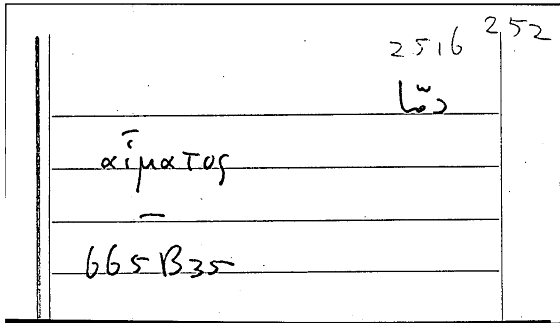 252
2516
αἵματος
—
665B35